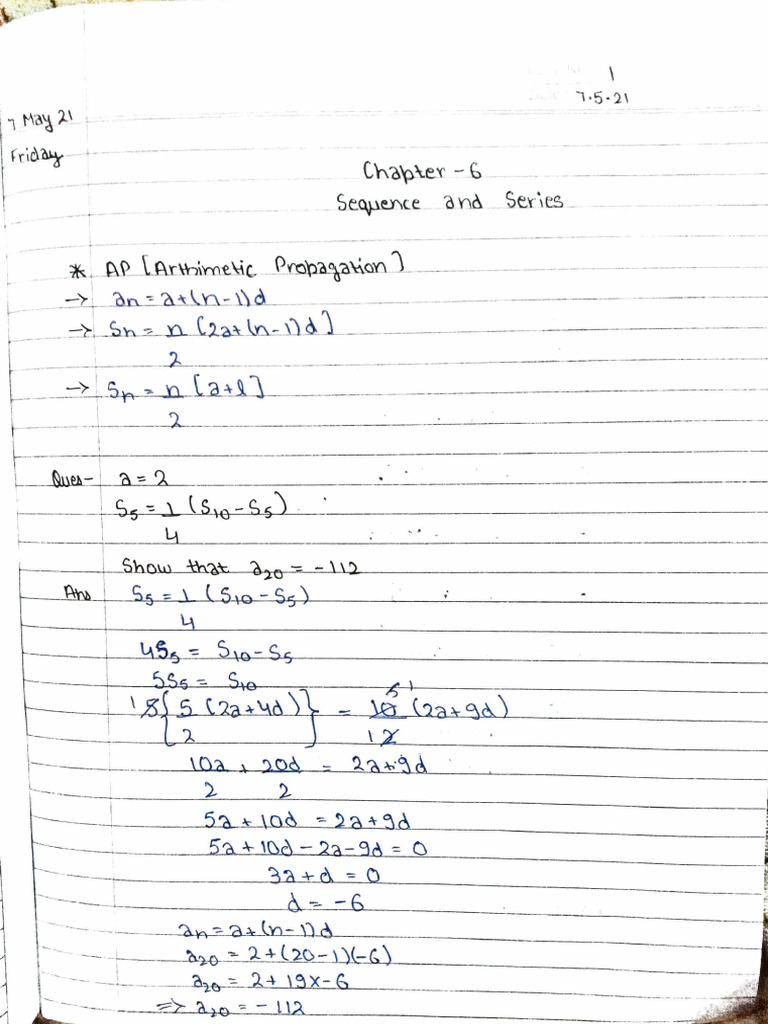 1
7.5.21
7 May 21
Friday
Chapter - 6
Sequence and Series
* AP [Arthimetic Propagation]
→ an = a+(n-1)d
→ Sn = n/2 [2a+(n-1)d]
→ Sn = n/2 [a+l]
Ques- a = 2
S5 = 1/4 (S10 - S5)
Show that a20 = -112
Ans S5 = 1/4 (S10 - S5)
4S5 = S10 - S5
5S5 = S10
1 5{5/2 (2a+4d)} = 10/2 (2a+9d) 5 1 1
10a/2 + 20d/2 = 2a+9d
5a + 10d = 2a+9d
5a + 10d - 2a - 9d = 0
3a + d = 0
d = -6
an = a+(n-1)d
a20 = 2+(20-1)(-6)
a20 = 2+19x-6
⇒ a20 = -112